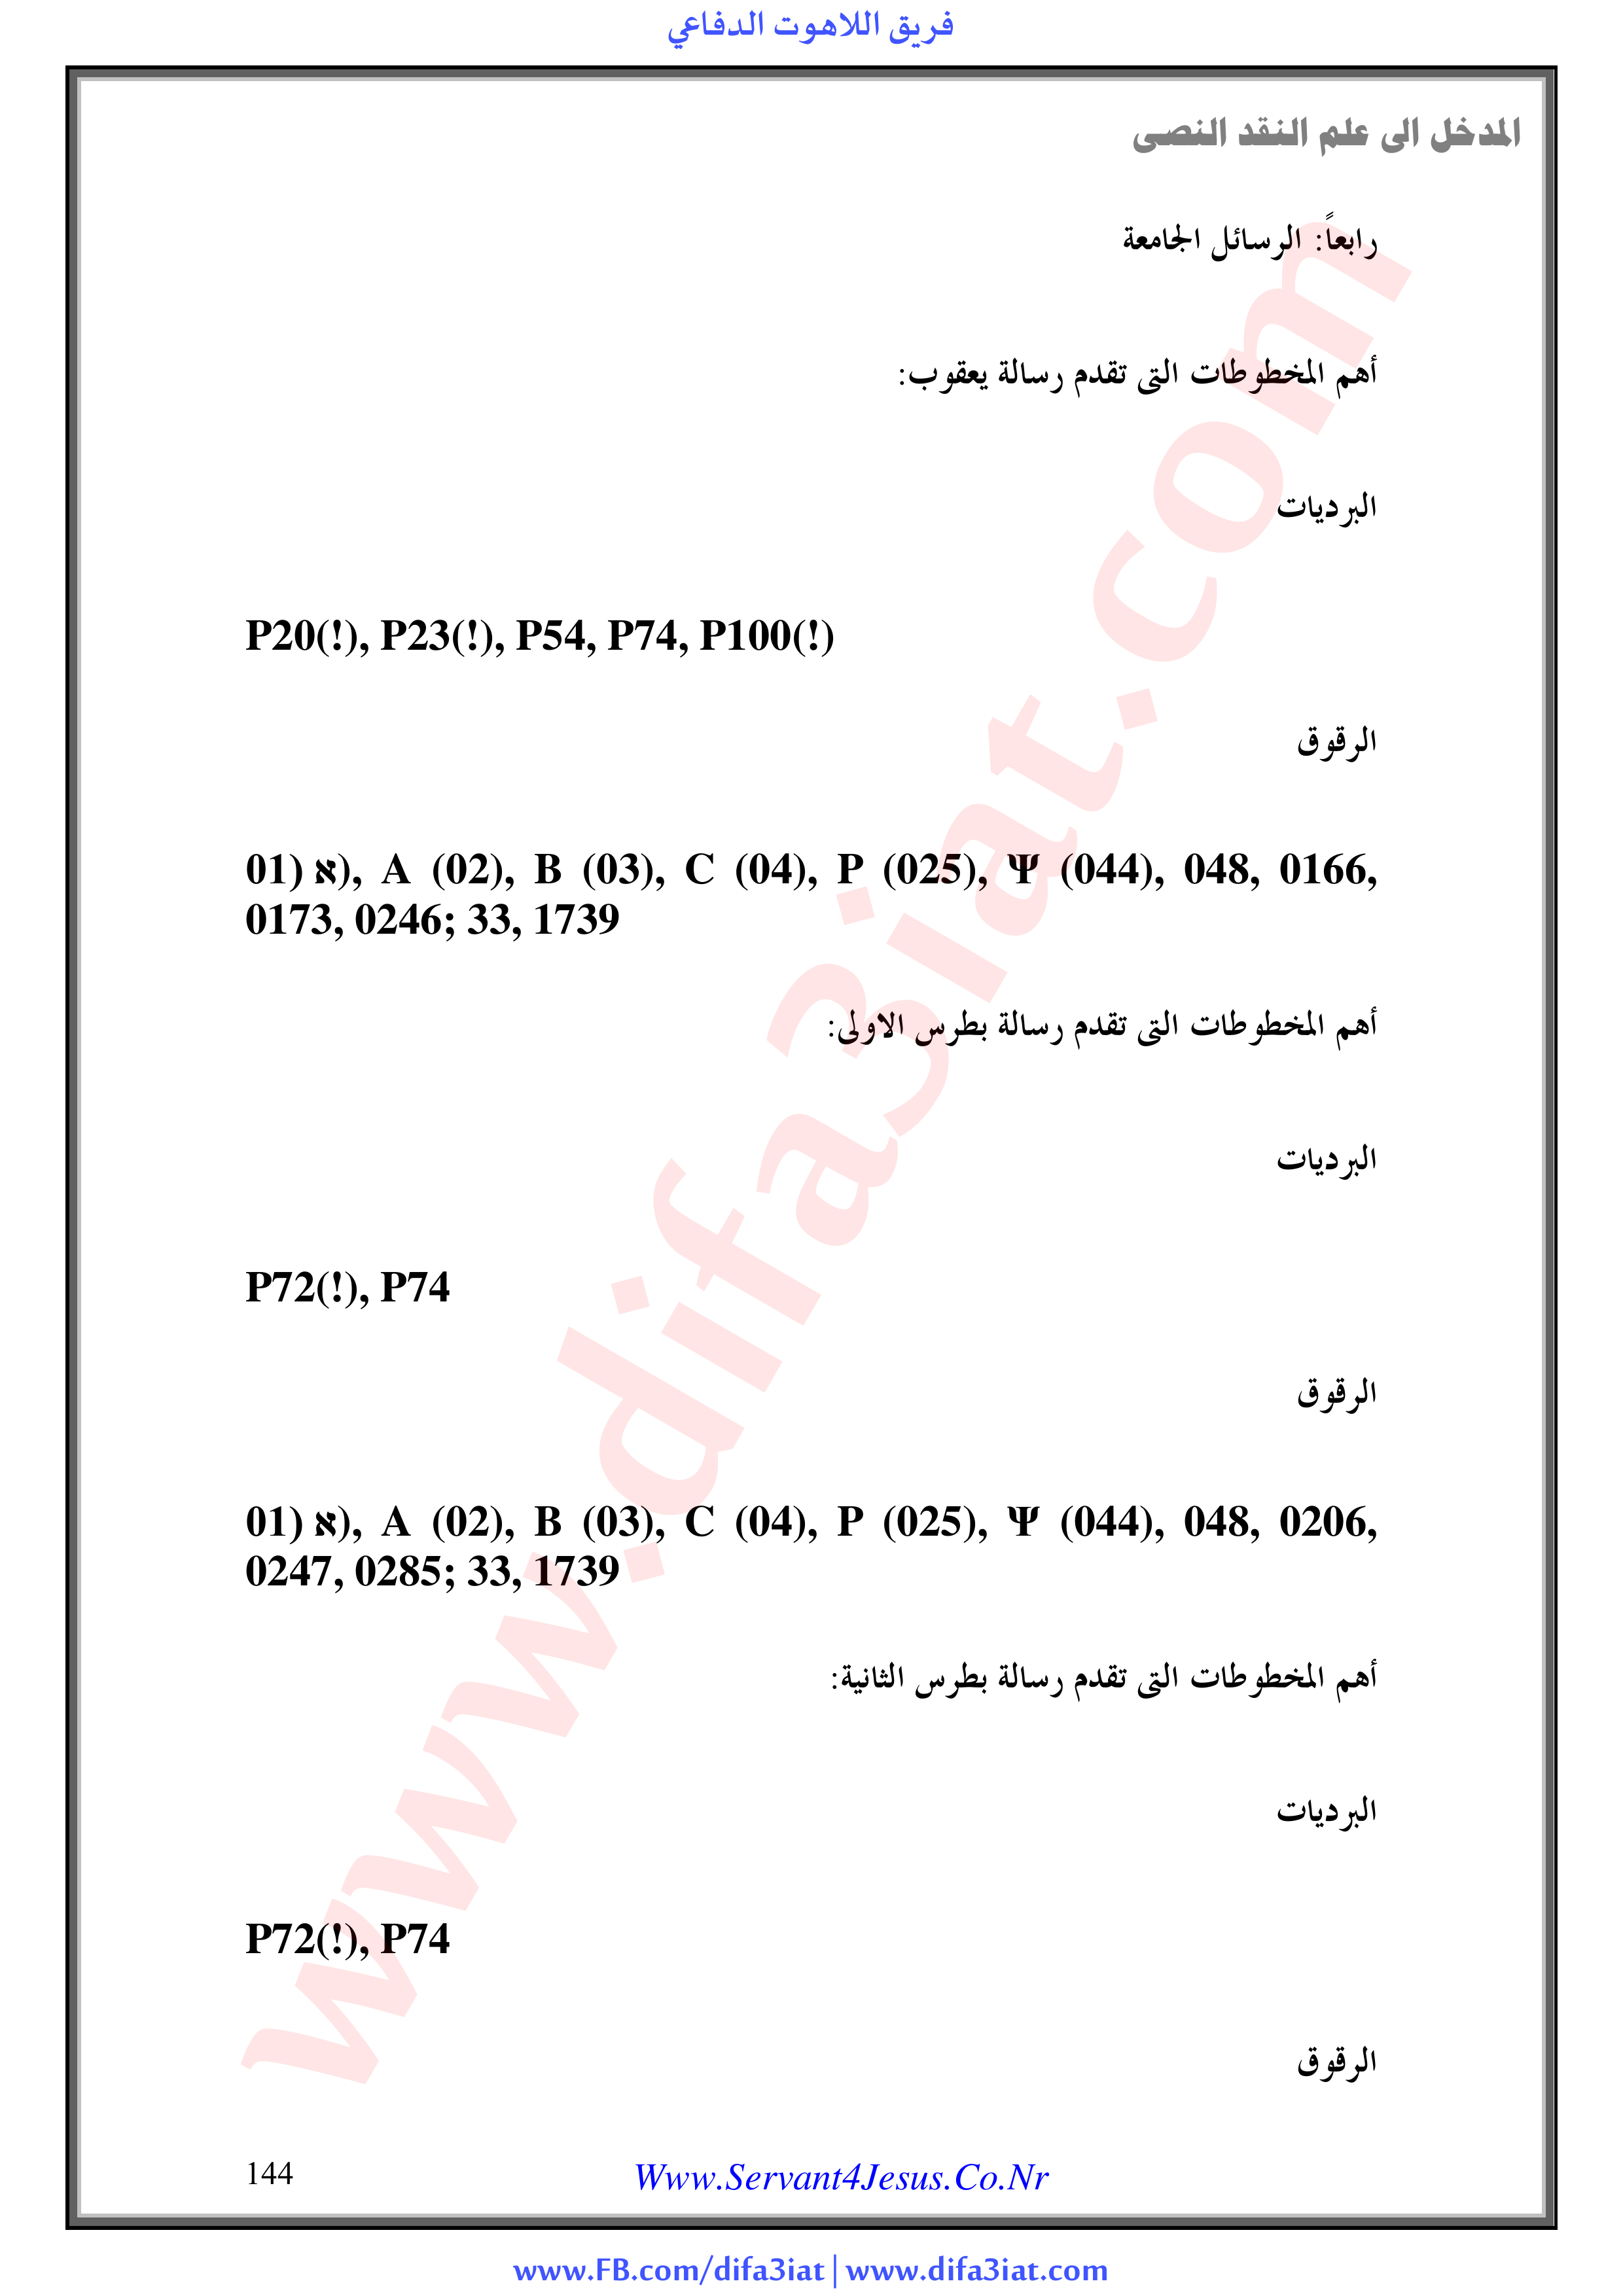 فريق اللاهوت الدفاعي
المدخل الى علم النقد النصى
رابعاً: الرسائل الجامعة
أهم المخطوطات التى تقدم رسالة يعقوب:
البرديات
P20(!), P23(!), P54, P74, P100(!)
الرقوق
01) א), A (02), B (03), C (04), P (025), Ψ (044), 048, 0166,
0173, 0246; 33, 1739
أهم المخطوطات التى تقدم رسالة بطرس الاولى:
البرديات
P72(!), P74
الرقوق
01) א), A (02), B (03), C (04), P (025), Ψ (044), 048, 0206,
0247, 0285; 33, 1739
أهم المخطوطات التى تقدم رسالة بطرس الثانية:
البرديات
P72(!), P74
الرقوق
www.difa3iat.com
144
Www.Servant4Jesus.Co.Nr
www.FB.com/difa3iat | www.difa3iat.com